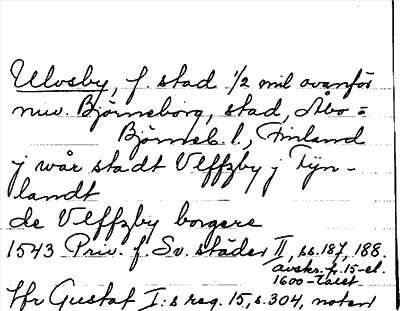 Ulvsby, f. stad 1/2 mil ovanför
nuv. Björneborg, stad, Åbo=
Björneb. l., Finland
j wår stadt Vlffzby j Fijn-
landt
de Vlffzby borgere
1543 Priv. f. Sv. städer II, ss. 187, 188.
avskr. fr. 15-el.
1600-talet
Hr Gustaf I:s reg. 15, s. 304, noten